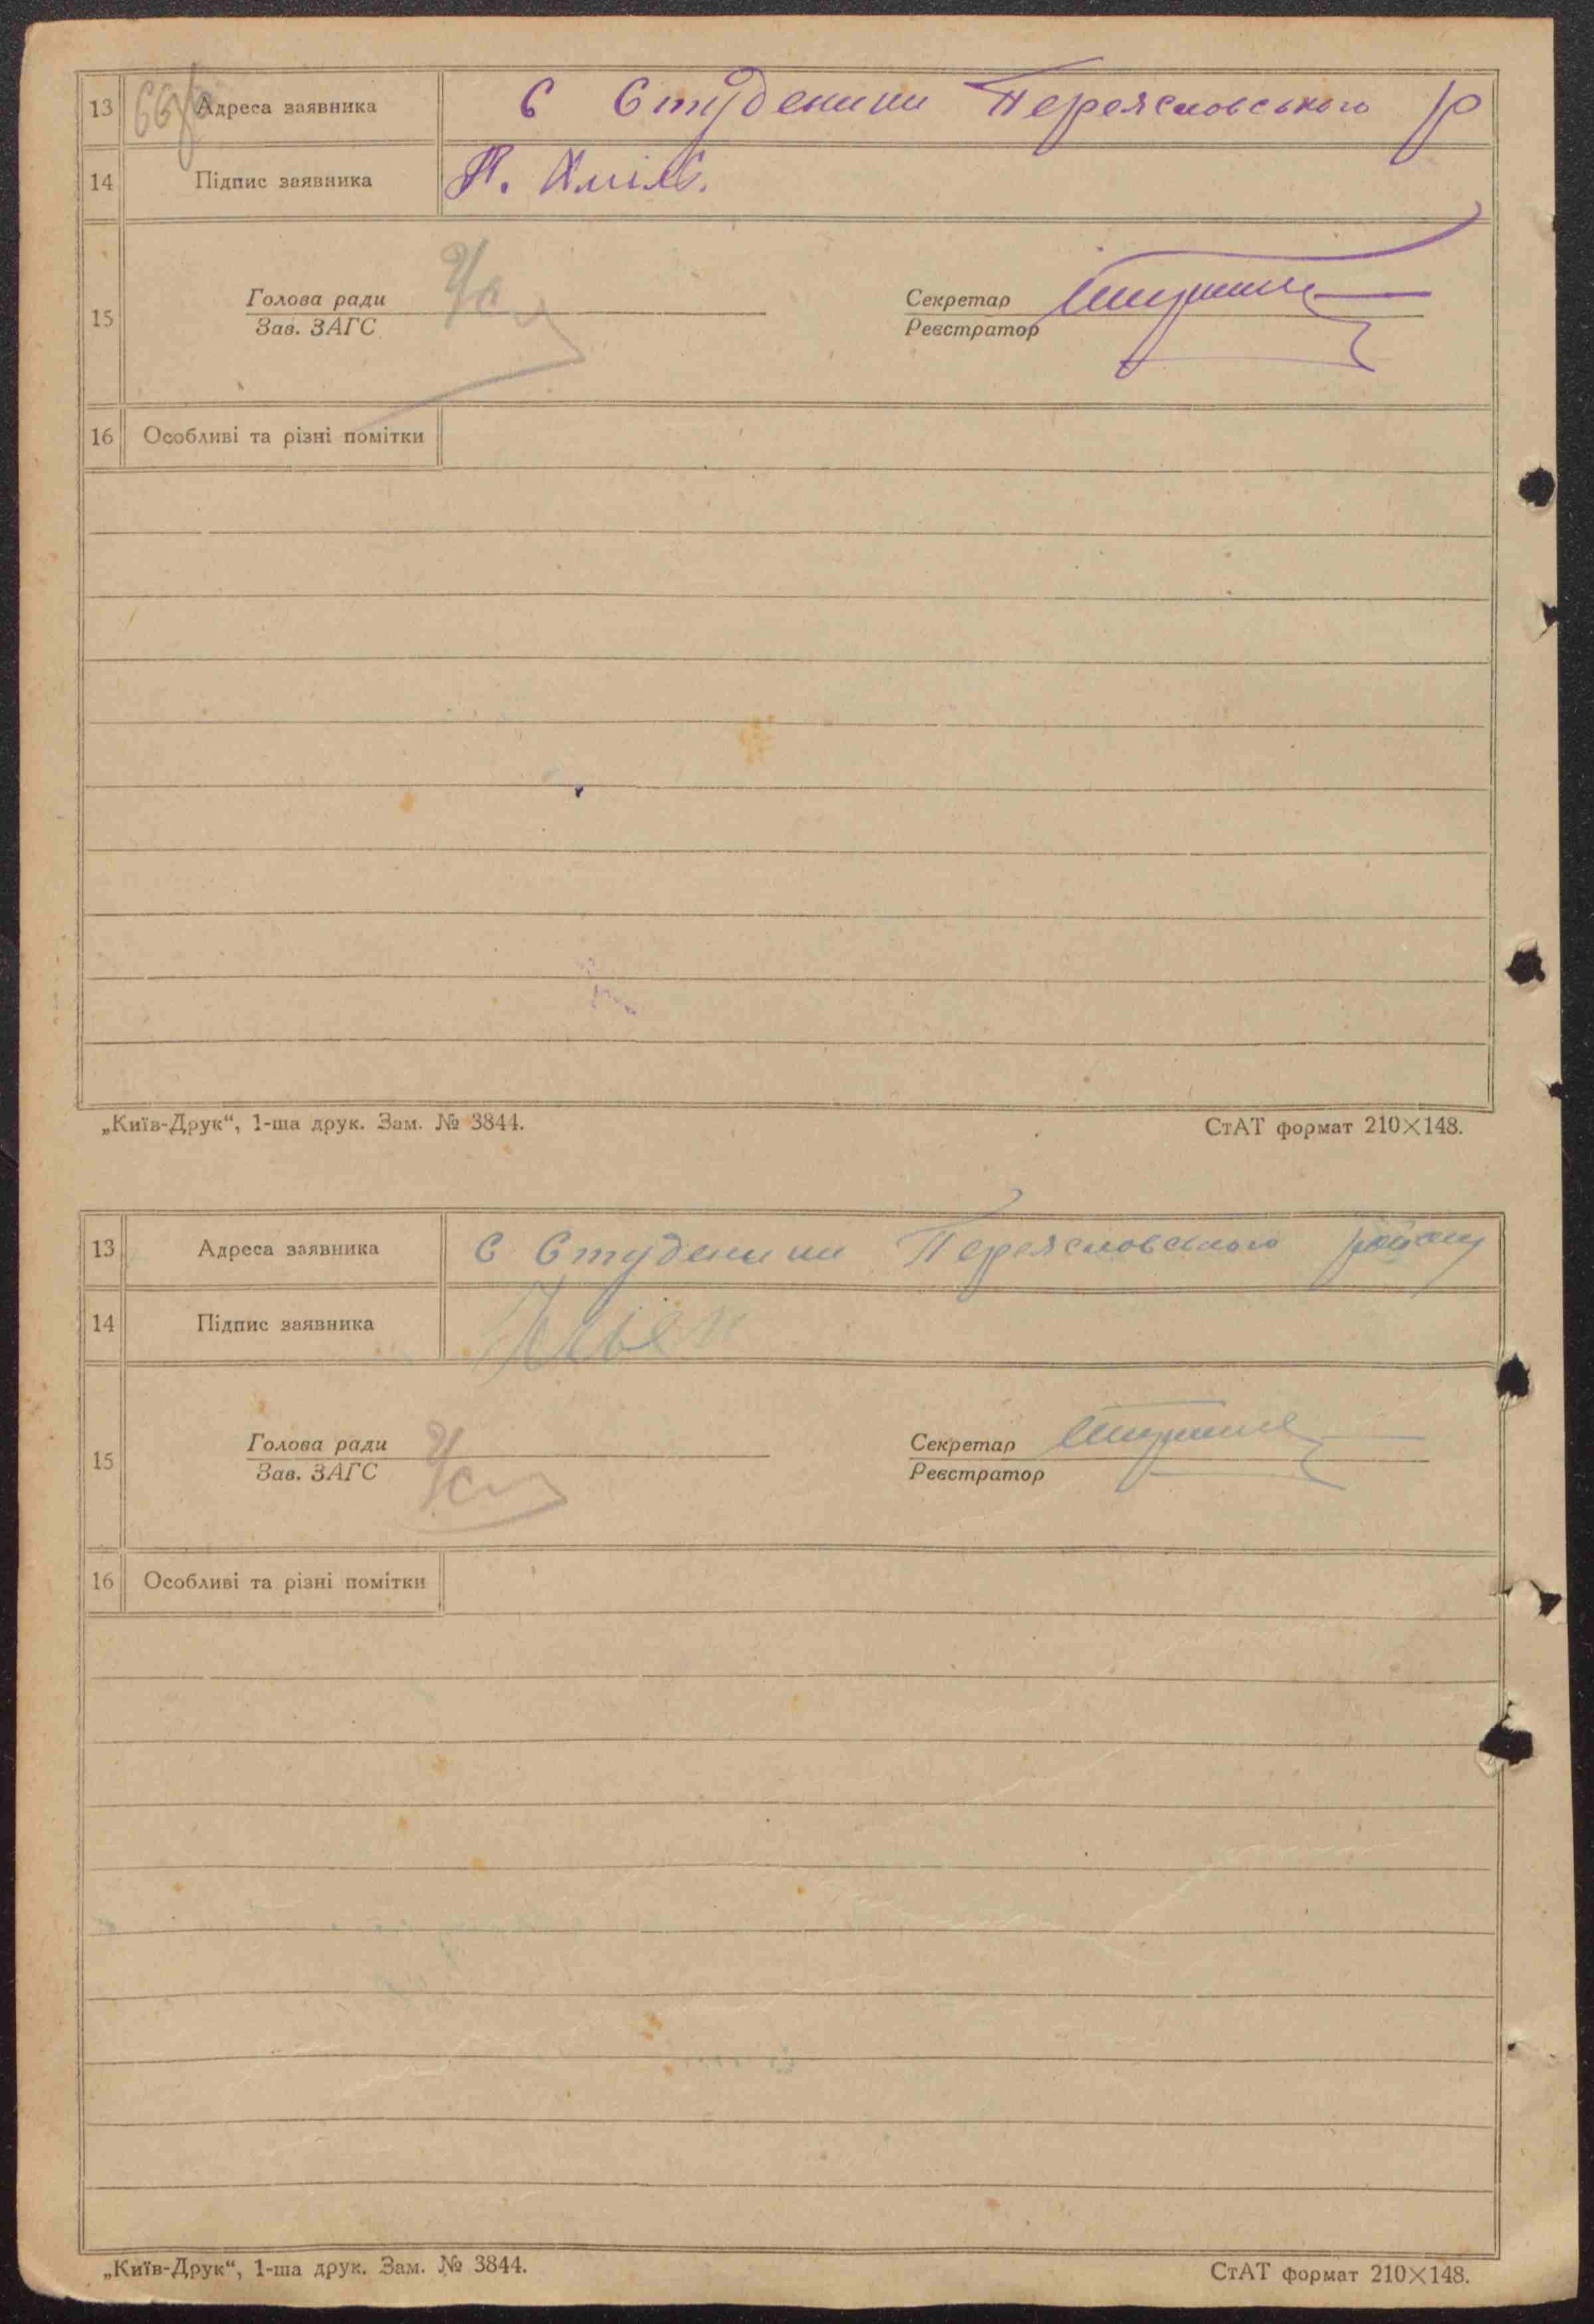 13 Адреса заявника с Студеники Переясловського р
14 Підпис заявника
15 Голова ради Секретар
Зав. ЗАГС Реєстратор
16 Особливі та різні помітки
„Київ-Друк“, 1-ша друк. Зам. № 3844. СтАТ формат 210×148.
13 Адреса заявника с Студеники Переясловського району
14 Підпис заявника
15 Голова ради Секретар
Зав. ЗАГС Реєстратор
16 Особливі та різні помітки
„Київ-Друк“, 1-ша друк. Зам. № 3844. СтАТ формат 210×148.